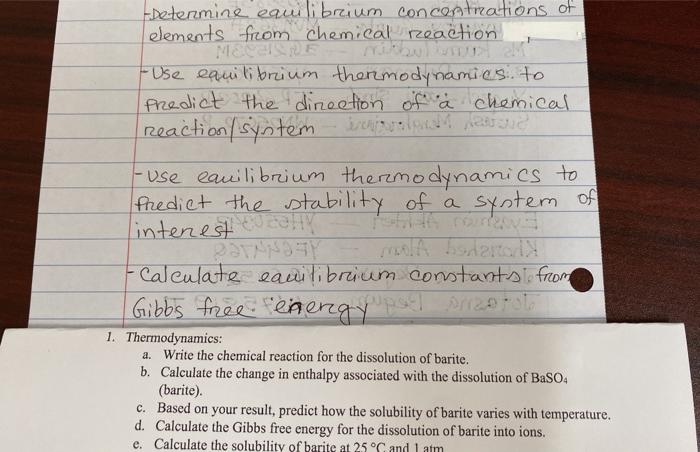 -Determine equilibrium concentrations of
elements from chemical reaction
-Use equilibrium thermodynamics to
predict the direction of a chemical
reaction/system
-Use equilibrium thermodynamics to
predict the stability of a system of
interest
-Calculate equilibrium constants from
Gibbs free energy
1. Thermodynamics:
a. Write the chemical reaction for the dissolution of barite.
b. Calculate the change in enthalpy associated with the dissolution of BaSO₄
(barite).
c. Based on your result, predict how the solubility of barite varies with temperature.
d. Calculate the Gibbs free energy for the dissolution of barite into ions.
e. Calculate the solubility of barite at 25 °C and 1 atm